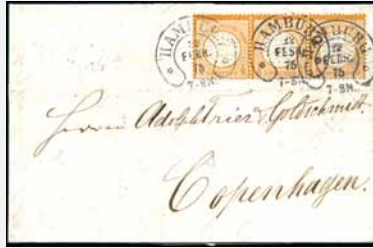 HAMBURG
FEBR.
75
7-8N.
HAMBURG
22
FEBR.
75
7-8N.
HAMBURG
22
FEBR.
75
7-8N.
Herren Adolph Trier & Goldschmidt.
Copenhagen.